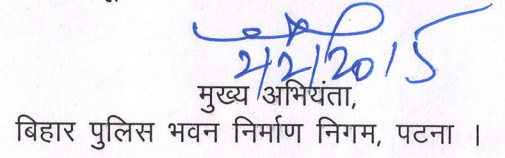 2/2/2015
मुख्य अभियंता,
बिहार पुलिस भवन निर्माण निगम, पटना ।